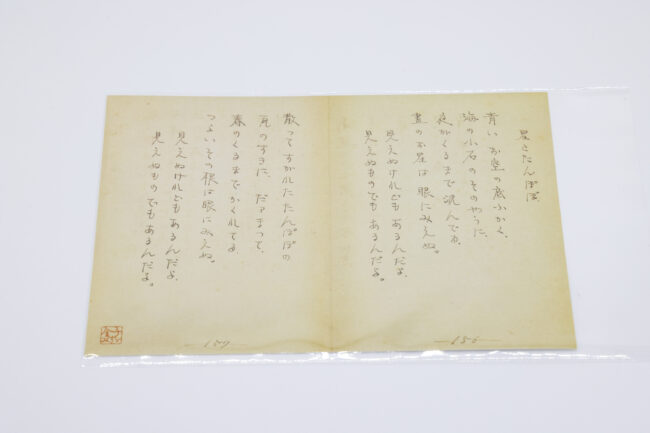 星とたんぽぽ
青いお空の底ふかく、
海の小石のそのやうに、
夜がくるまで沈んでる、
昼のお星は眼にみえぬ。
見えぬけれどもあるんだよ、
見えぬものでもあるんだよ。
散ってすがれたたんぽぽの
瓦のすきに、だァまつて、
春のくるまでかくれてる
つよいその根は眼にみえぬ。
見えぬけれどもあるんだよ、
見えぬものでもあるんだよ。